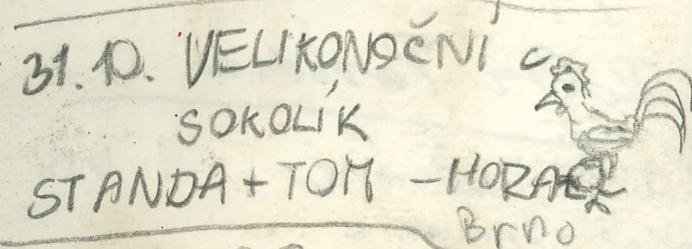 31.10. VELIKONOČNÍ
SOKOLÍK
STANDA + TOM - HORAČ
Brno